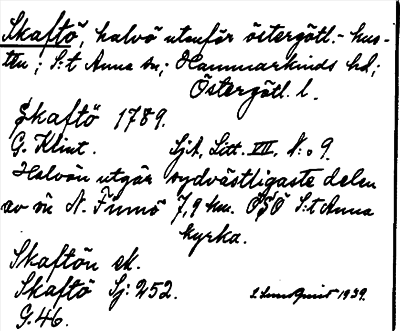 Skaftö, halvö utanför östergötl.- kus-
ten; S:t Anna sn; Hammarkinds hd;
Östergötl. l.
Skaftö 1789.
G. Klint. Sjk, Litt. VII, N:o 9.
Halvön utgör sydvästligaste delen
av ön N. Finnö 7,9 km. ÖSÖ S:t Anna
kyrka.
Skaftön ek.
Skaftö Sj: 252.
G. 46.
S Lundquist 1939.